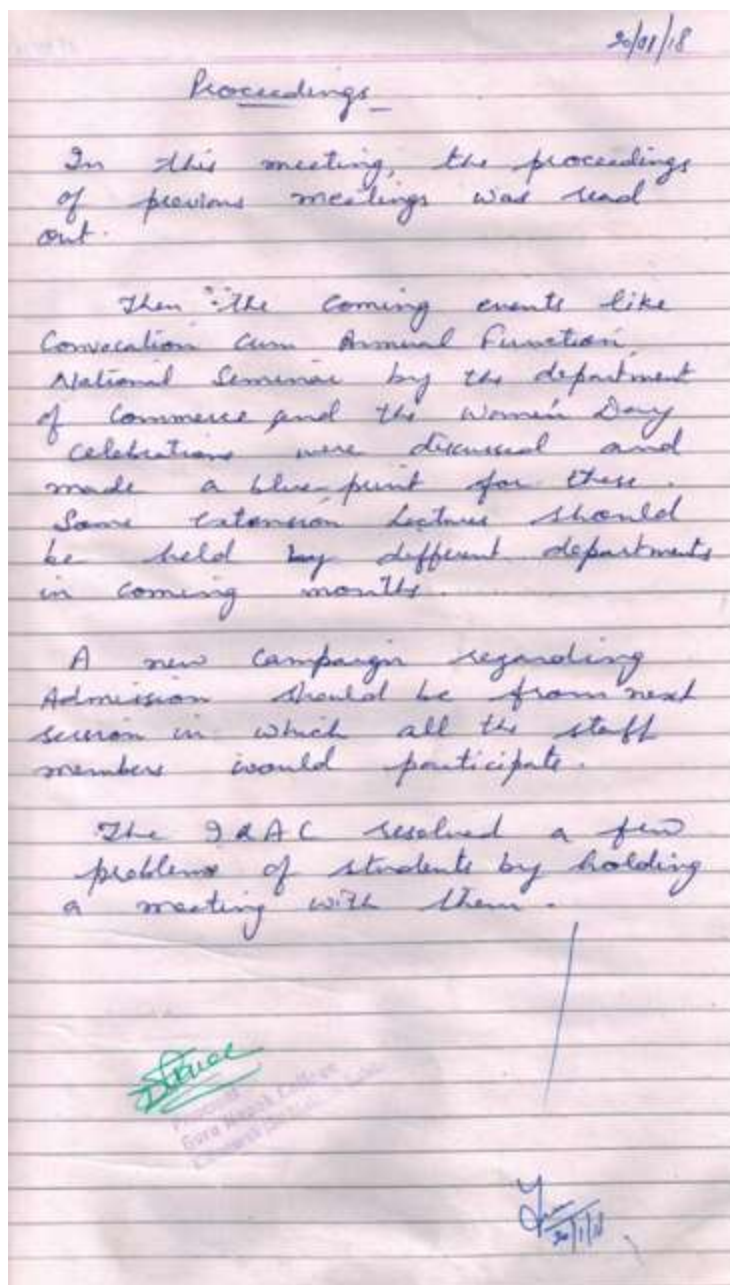 20/01/18
Proceedings
In this meeting, the proceedings
of previous meetings was read
out.
Then the coming events like
Convocation cum Annual Function,
National Seminar by the department
of Commerce and the Women Day
celebrations were discussed and
made a blue-print for these.
Some extension lectures should
be held by different departments
in coming months.
A new campaign regarding
Admission should be from next
session in which all the staff
members would participate.
The IQAC resolved a few
problems of students by holding
a meeting with them.
Principal
Guru Nanak College
20/1/18